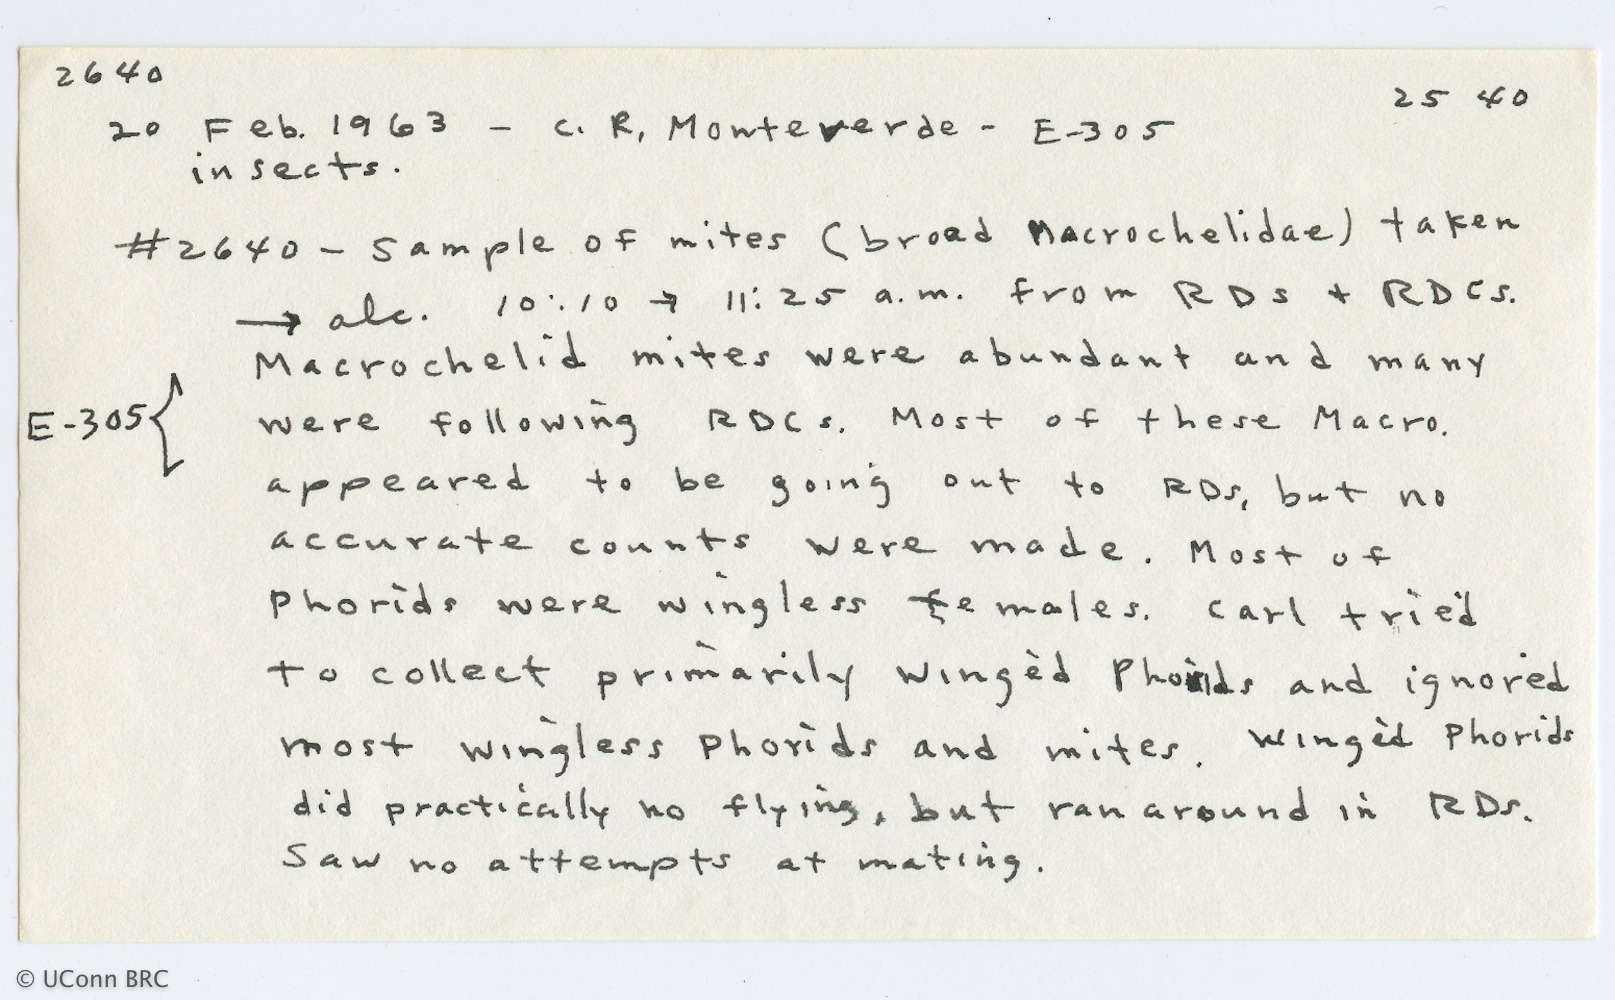 2640
25 40
20 Feb. 1963 - C. R, Monteverde - E-305
insects.
#2640 - Sample of mites (broad Macrochelidae) taken
→ alc. 10:10 → 11:25 a.m. from RDs + RDCs.
Macrochelid mites were abundant and many
E-305 { were following RDCs. Most of these Macro.
appeared to be going out to RDs, but no
accurate counts were made. Most of
Phorids were wingless females. Carl tried
to collect primarily winged Phorids and ignored
most wingless Phorids and mites. Winged Phorids
did practically no flying, but ran around in RDs.
Saw no attempts at mating.
© UConn BRC